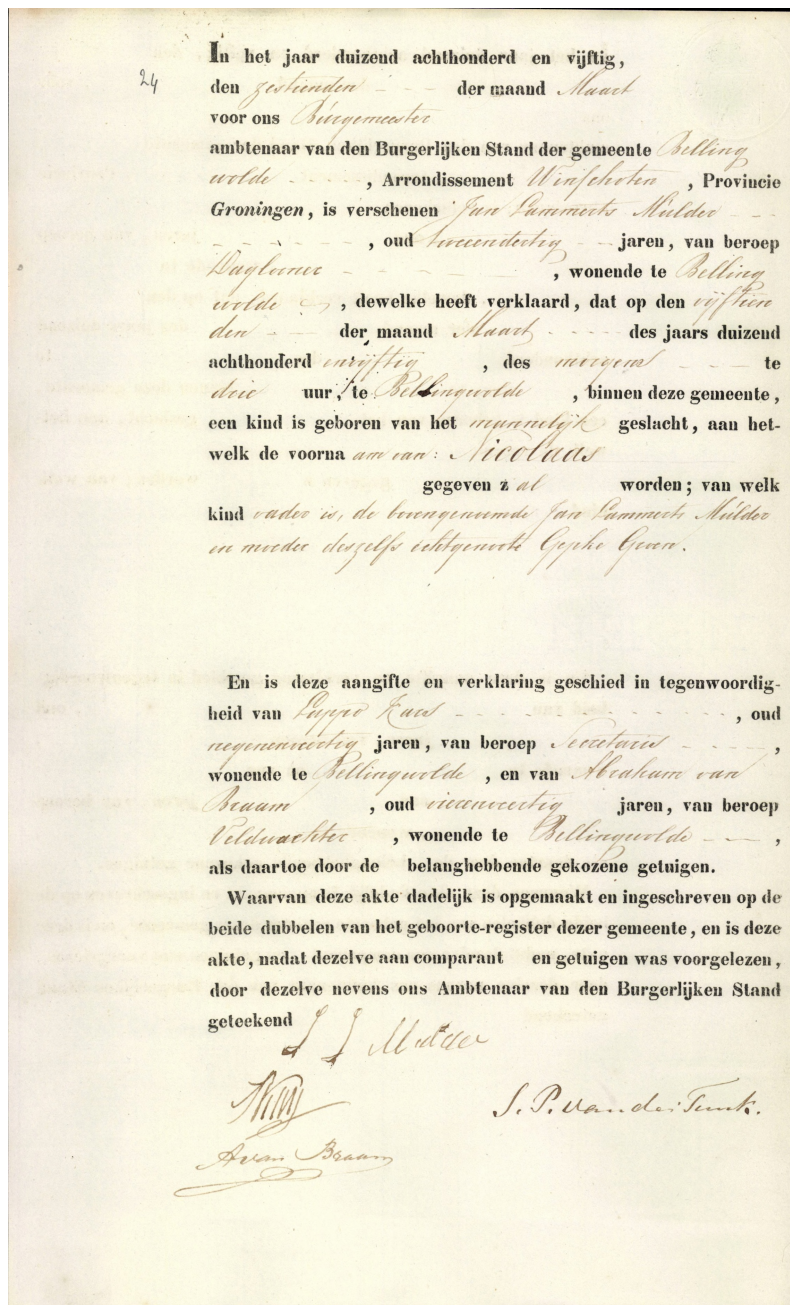 24
In het jaar duizend achthonderd en vijftig,
den zestienden der maand Maart
voor ons Burgemeester
ambtenaar van den Burgerlijken Stand der gemeente Belling
wolde , Arrondissement Winschoten , Provincie
Groningen, is verschenen Jan Lammerts Mulder
, oud tweeendertig jaren, van beroep
Daglooner , wonende te Belling
wolde , dewelke heeft verklaard, dat op den vijftien
den der maand Maart des jaars duizend
achthonderd en vijftig , des morgens te
drie uur, te Bellingwolde , binnen deze gemeente,
een kind is geboren van het mannelijk geslacht, aan het-
welk de voorna am van: Nicolaas
gegeven z al worden; van welk
kind vader is, de bovengenoemde Jan Lammerts Mulder
en moeder deszelfs echtgenoote Geven.
En is deze aangifte en verklaring geschied in tegenwoordig-
heid van , oud
negenenveertig jaren, van beroep Secretaris ,
wonende te Bellingwolde , en van Abraham van
Braam , oud vierenveertig jaren, van beroep
Veldwachter , wonende te Bellingwolde ,
als daartoe door de belanghebbende gekozene getuigen.
Waarvan deze akte dadelijk is opgemaakt en ingeschreven op de
beide dubbelen van het geboorte-register dezer gemeente, en is deze
akte, nadat dezelve aan comparant en getuigen was voorgelezen,
door dezelve nevens ons Ambtenaar van den Burgerlijken Stand
geteekend
J L Mulder
S. P. van der Tuuk.
A van Braam